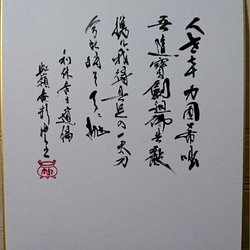 人世七十力囲希咄
吾這寶剣祖佛共殺
提る我得具足の一太刀
今此時そ天に抛
利休居士遺偈